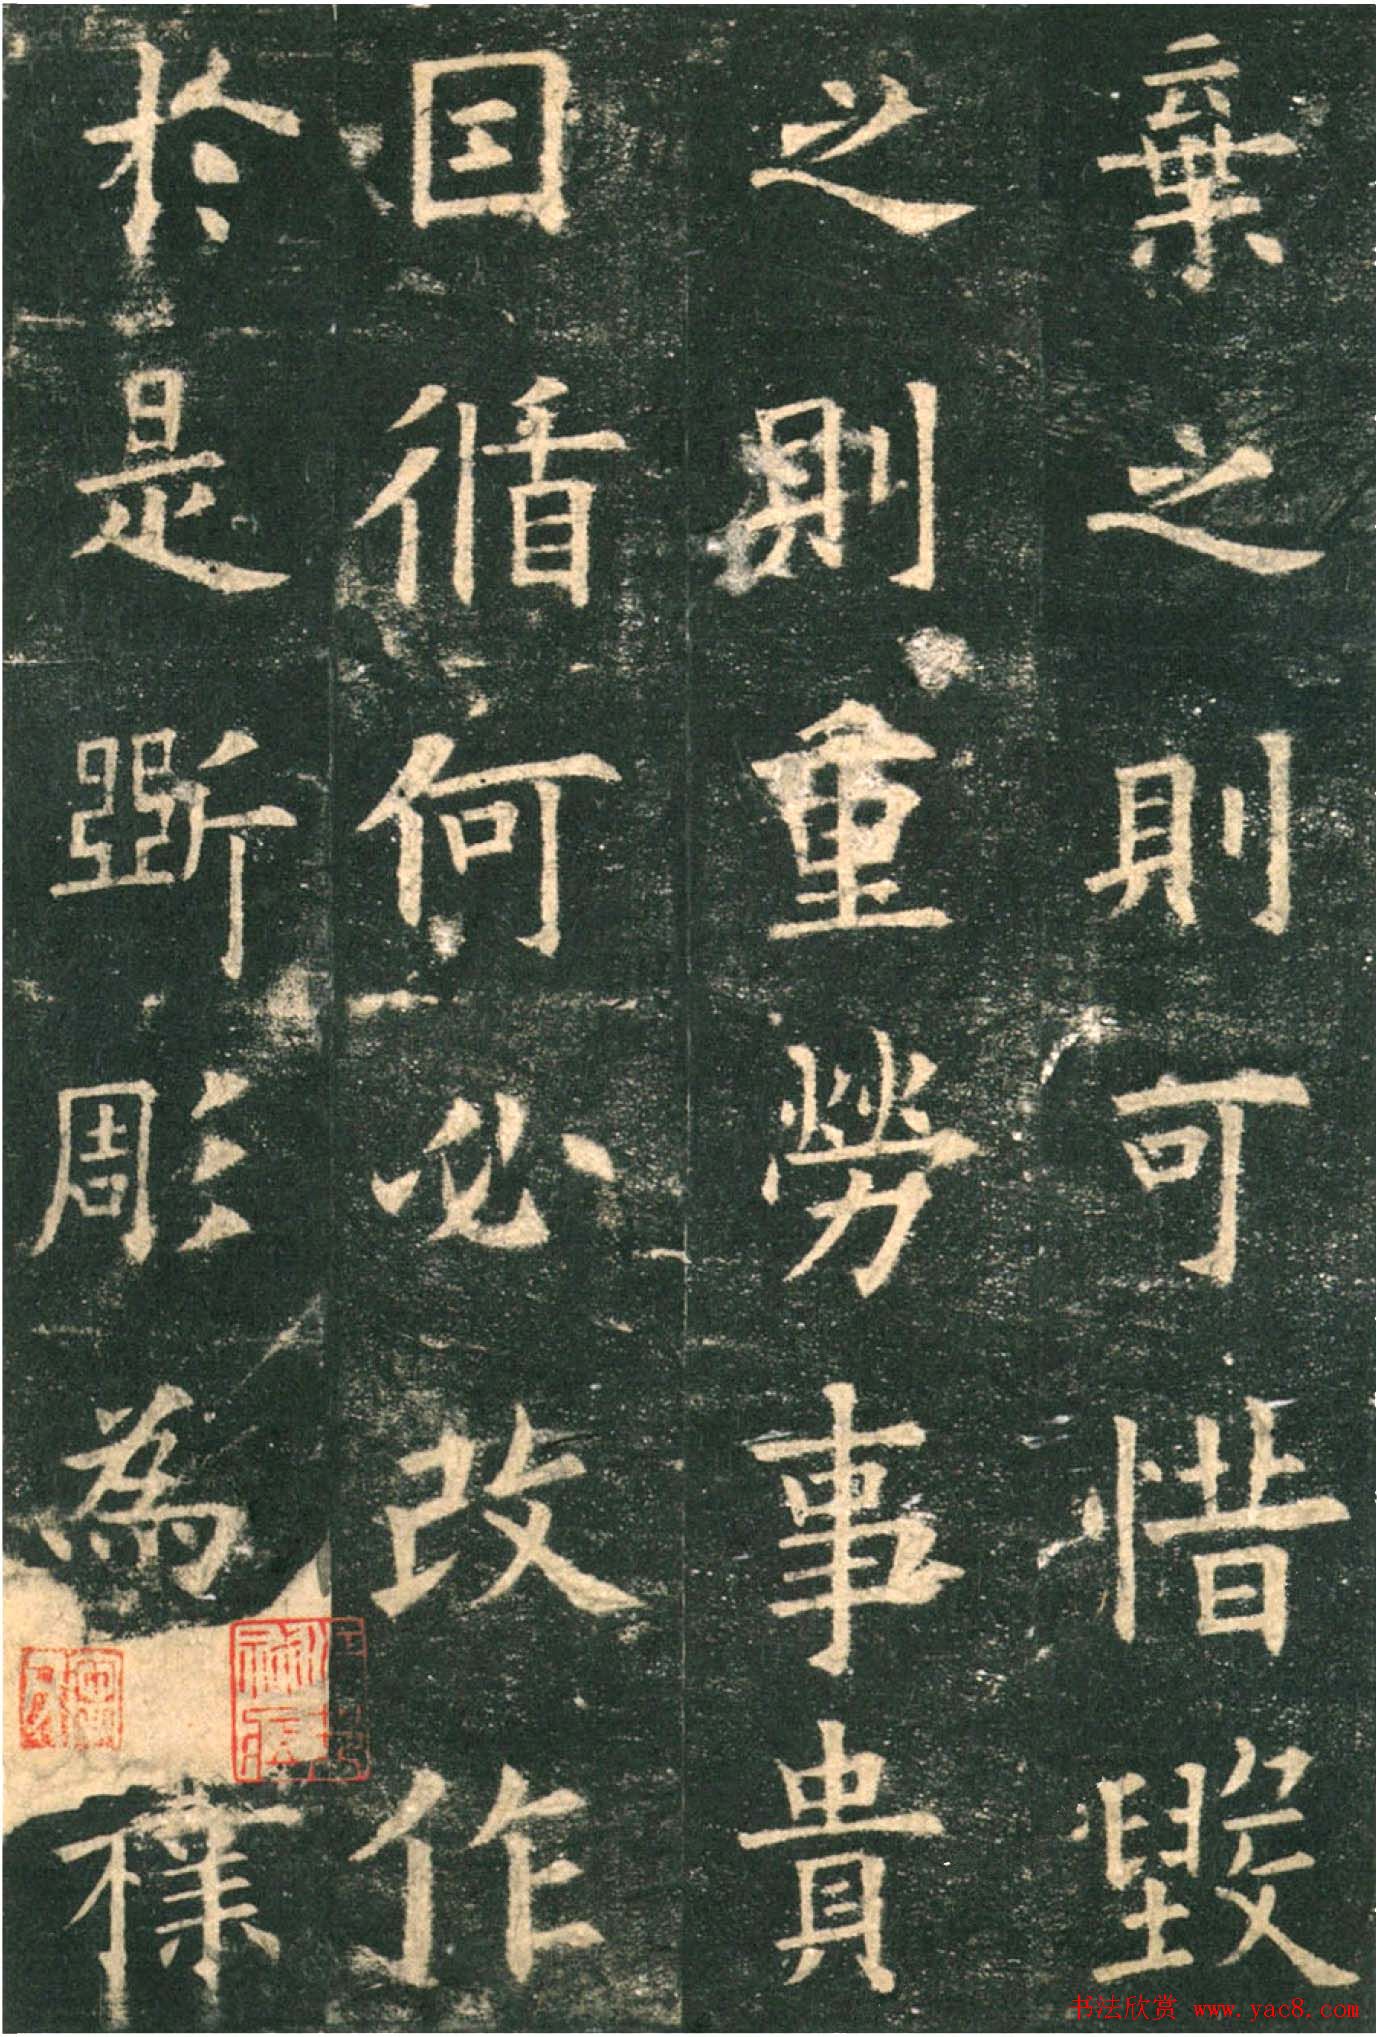 棄之則可惜毀
之則重勞事貴
因循何必改作
於是斲彫為樸
书法欣赏 www.yac8.com